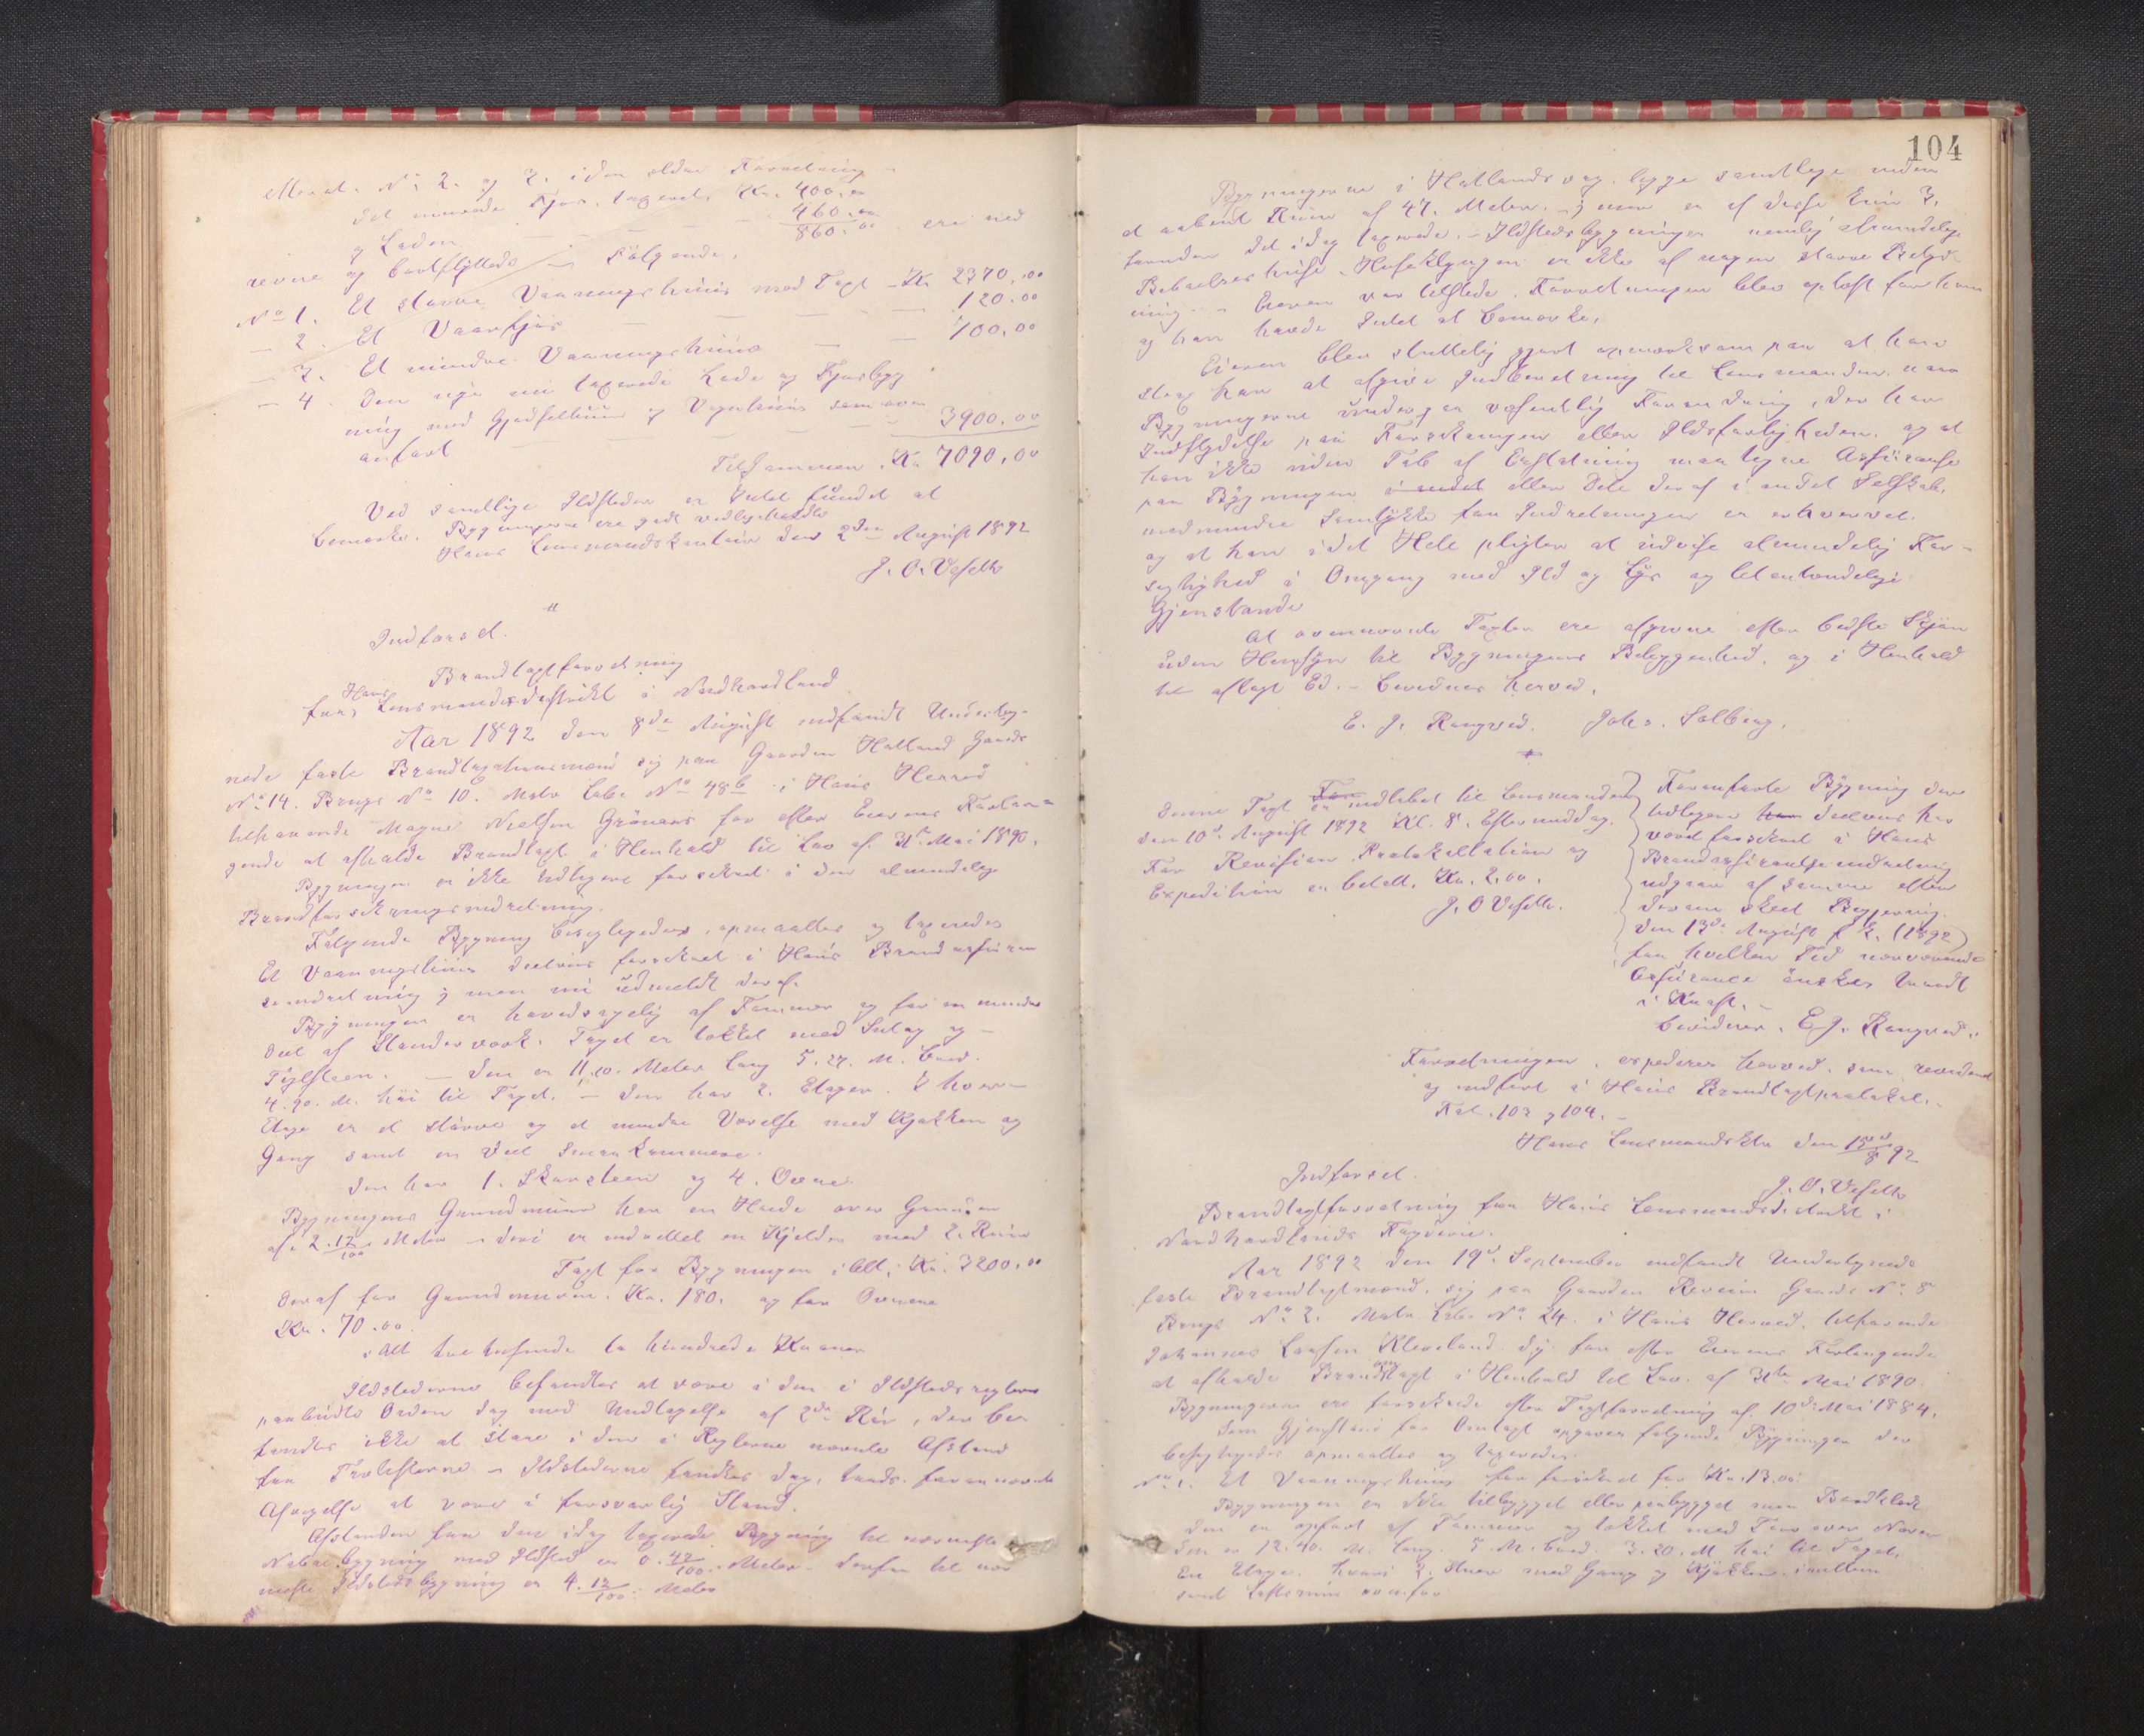 Mærk. No 2. og 3. i den ældre Forretning
det murede Fjøs, taxeret, Kr. 400,00
og Laden 460,00
860,00 ere ned
revne og bortflyttede Følgende,
No 1. Et større Vaaningshuus med Taxt - Kr 2370,00
— 2. Et Vaarfjøs — — — 120.00
— 3. Et mindre Vaaningshuus — — 700,00
— 4. Den nye nu taxerede Lade og Fjøsbyg
ning med Gjødselhuus og Vognhuus som oven
anført — — — 3900,00
Tilsammen, Kr 7090,00
Ved samtlige Ildsteder er Intet fundet at
bemærke. Bygningerne ere godt vedligeholdte
Haus Lensmandskontoir den 2den August 1892
J. O. Veseth
Indførsel.
Brandtaxtforretning
for Haus Lensmandsdistrikt i Nordhordland
Aar 1892 den 8de August indfandt Underteg-
nede faste Brandtaxationsmænd sig paa Gaarden Hatland Gaards
No 14. Brugs No 10. Matr Løbe No 48b i Haus Herred
tilhørende Magne Nielsen for efter Eierens Forlan-
gende at afholde Brandtaxt i Henhold til Lov af 31te Mai 1890.
Bygningen er ikke tidligere forsikret i den almindelige
Brandforsikringsindretning.
Følgende Bygning besigtigedes, opmaaltes og taxeredes
Et Vaaningshuus deelviis forsikret i Haus Brandassuran
ceindretning; men nu udmeldt deraf.
Bygningen er hovedsagelig af Tømmer og for en mindre
Deel af Standerværk. Taget er tækket med Sutag og
Tiglsteen. — Den er 11,10. Meter lang 5.27. M. bred.
4.90. M. høi til Taget. — Den har 2. Etager. I hver
Etage er et større og et mindre Værelse med Kjøkken og
Gang samt en Deel Smaakammere.
Den har 1. Skorsteen og 4. Ovne.
Bygningens Grundmuur har en Høide over Grunden
af 2.12/100 Meter – deri er indrettet en Kjelder med 2. Rum
Taxt for Bygningen i alt, Kr. 3200,00
deraf for Grundmuren. Kr. 180. og for Ovnene
Kr. 70.00.
i alt tre tusinde to hundrede Kroner
Ildstederne befandtes at være i den i Ildstedsreglerne
paabudte Orden dog med Undtagelse af 2de Rør, der be
fandtes ikke at staae i den i Reglerne nævnte Afstand
fra Træklæderne – Ildstederne fandtes dog, tiads. forannævnte
Afvigelse at være i forsvarlig Stand.
Afstanden fra den idag taxerede Bygning til nærmeste
Nabobygning med Ildsted er 0.42/100. Meter – derfra til nær
meste Ildstedsbygning er 4.12/100 Meter
104
Bygningerne i Hatlandsvaag ligge samtlige inden
et aabent Rum af 47. Meter. –; men er af disse kun 3,
foruden det idag taxerede. – Ildstedsbygninger nemlig almindelige
Beboelseshuse. Huseklyngen er ikke af nogen større Betyd-
ning. – Eieren var tilstede. Forretningen blev oplæst for ham
og han havde Intet at bemærke.
Eieren blev sluttelig gjort opmærksom paa at han
strax har at afgive Indberetning til Lensmanden, naar
Bygningerne undergaaer væsentlig Forandring, der har
Indflydelse paa Forsikringen eller Ildsfarligheden. og at
han ikke uden Tab af Erstatning maa tegne Assurance
paa Bygningen i andet eller Dele deraf i andet Selskab,
medmindre Samtykke fra Indretningen er erhvervet.
og at han i det Hele pligter at udvise almindelig For-
sigtighed i Omgang med Ild og Lys og letantændelige
Gjenstande
At ovennævnte Taxter ere afgivne efter bedste Skjøn
uden Hensyn til Bygningens Beliggenhed, og i Henhold
til aflagt Ed. – bevidnes herved.
E. J. Rongved. Johs. Solberg.
Denne Taxt er indløbet til Lensmanden
den 10de August 1892 Kl. 8. Eftermiddag.
For Revision Protokollation og
Expedition er betalt. Kr. 2,00.
J. O Veseth.
Foranførte Bygning der
tidligere har deelviis har
været forsikret i Haus
Brandassuranceindretning
udgaar af samme efter
derom skeet Begjæring
den 13de August d. A. (1892)
fra hvilken Tid nærværende
Assurance ønskes traadt
i Kraft. –
bevidner. E. J. Rongved.
Forretningen, expederes herved. som revideret
og indført i Haus Brandtaxtprotokol.
Fol. 103 & 104. –
Haus Lensmandsktr den 15/8 92
J. O. Veseth
Indførsel.
Brandtaxtforretning fra Haus Lensmandsdistrikt i
Nordhordlands Fogderie.
Aar 1892 den 19de September indfandt Undertegnede
faste Brandtaxtmænd, sig paa Gaarden Gaards No 8
Brugs No 2. Matr. Løbe No 24. i Haus Herred, tilhørende
Johannes Larsen Kleveland for efter Eierens Forlangende
at afholde Brandomtaxt i Henhold til Lov. af 31te Mai 1890.
Bygningerne ere forsikrede efter Taxtforretning af 10de Mai 1884.
Som Gjenstand for Omtaxt opgaves følgende Bygninger der
besigtigedes opmaaltes og taxeredes
No 1. Et Vaaningshuus før forsikret for Kr.
Bygningen er ikke tilbygget eller paabygget men Bordklædt
den er opført af Tømmer og tækket med Torv over Næver
den er 12.40. M. lang. 5. M. bred. 3.20. M høi til Taget,
En Etage. hvori 2. Stuer med Gang og Kjøkken imellem
samt Loftsrum ovenfor